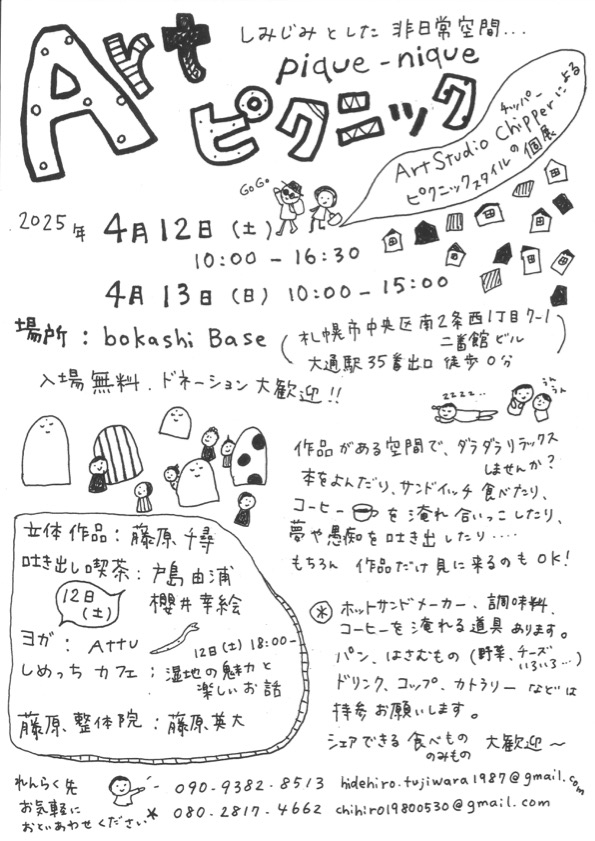 Art
しみじみとした 非日常空間...
pique-nique
ピクニック
Art Studio Chipperによる
チッパー
ピクニックスタイルの個展
GoGo
2025年 4月12日(土)
10:00-16:30
4月13日(日) 10:00-15:00
場所:bokashi Base
(札幌市中央区南2条西1丁目7-1
二番館ビル
大通駅35番出口 徒歩0分)
入場無料.ドネーション大歓迎!!
zzzz...
うんうん
作品がある空間で、ダラダラリラックス
しませんか?
本をよんだり、サンドイッチ食べたり、
コーヒーを淹れ合いっこしたり、
夢や愚痴を吐き出したり....
もちろん 作品だけ見に来るのもOK!
立体作品:藤原千尋
吐き出し喫茶:戸島由浦
櫻井幸絵
12日(土)
ヨガ:Attu
12日(土)18:00-
しめっちカフェ:湿地の魅力と
楽しいお話
藤原整体院:藤原英大
※ ホットサンドメーカー、調味料、
コーヒーを淹れる道具あります。
パン、はさむもの(野菜、チーズ いろいろ...)
ドリンク、コップ、カトラリーなどは
持参お願いします。
シェアできる食べもの のみもの 大歓迎〜
れんらく先
お気軽に
おといあわせください*
090-9382-8513 hidehiro.fujiwara1987@gmail.com
080-2817-4662 chihiro19800530@gmail.com